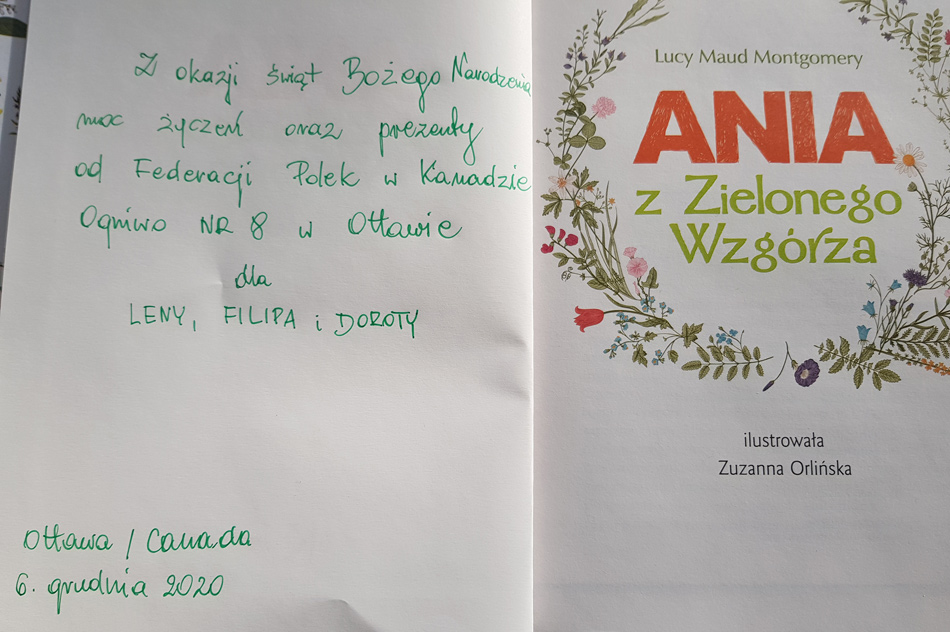 Z okazji świąt Bożego Narodzenia
moc życzeń oraz prezenty
od Federacji Polek w Kanadzie
Ogniwo NR 8 w Ottawie
dla
LENY, FILIPA i DOROTY
Ottawa / Canada
6. grudnia 2020
Lucy Maud Montgomery
ANIA
z Zielonego
Wzgórza
ilustrowała
Zuzanna Orlińska